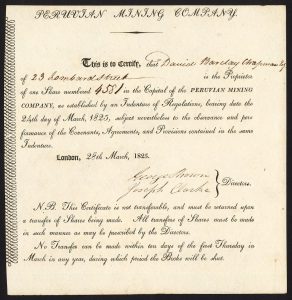 PERUVIAN MINING COMPANY.
This is to Certify, that David Barclay Chapman Esq
of 23 Lombard Street is the Proprietor
of one Share numbered 4551 in the Capital of the PERUVIAN MINING
COMPANY, as established by an Indenture of Regulations, bearing date the
24th day of March, 1825, subject nevertheless to the observance and per-
formance of the Covenants, Agreements, and Provisions contained in the same
Indenture.
London, 28th March, 1825.
George Brown
Joseph Clarke } Directors.
N.B. This Certificate is not transferable, and must be returned upon
a transfer of Shares being made. All transfers of Shares must be made
in such manner as may be prescribed by the Directors.
No Transfer can be made within ten days of the first Thursday in
March in any year, during which period the Books will be shut.